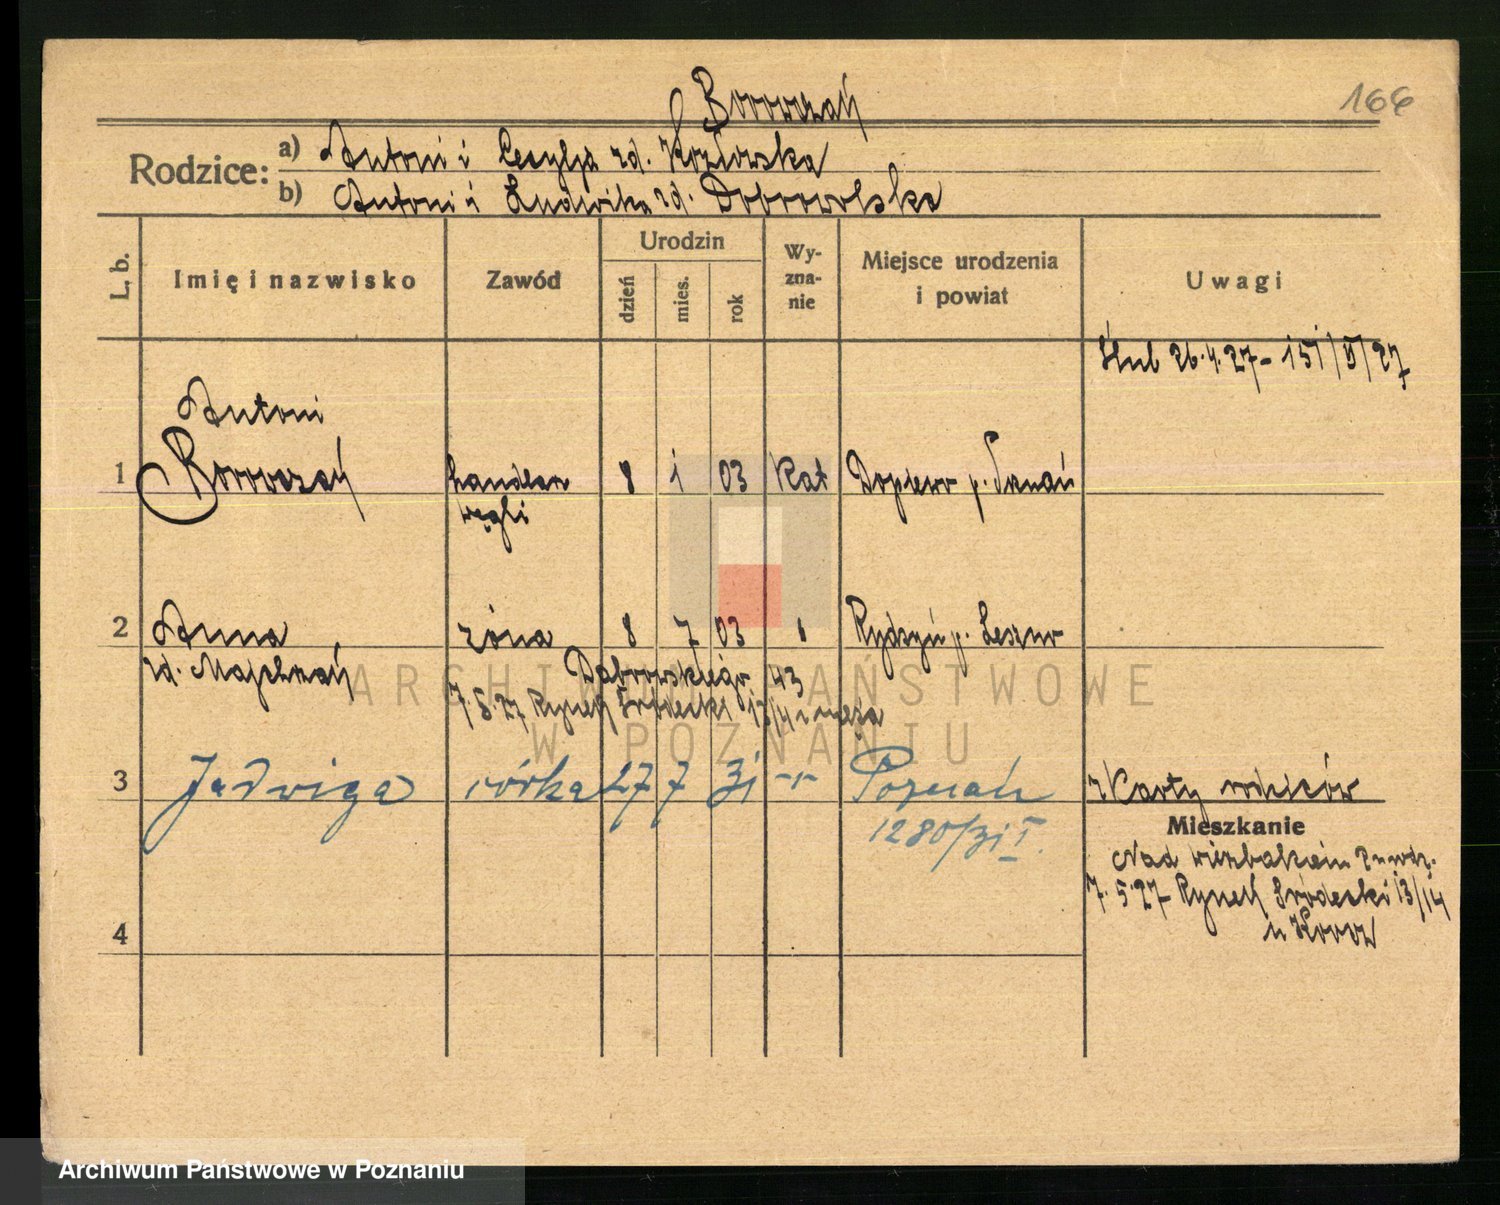 166
Borowczak
Rodzice:
a) Antoni i Cecylja zd. Kozłowska
b) Antoni i Ludwika zd. Dobrowolska
L. b.
Imię i nazwisko
Zawód
Urodzin
dzień
mies.
rok
Wy-
zna-
nie
Miejsce urodzenia
i powiat
Uwagi
Ślub 26.4.27 - 151/II/27
Antoni
1 Borowczak handlarz 8 1 03 kat Dopiewo p. Poznań
węgli
2 Anna żona 8 7 03 " Rydzyń p. Leszno
zd. Majchrzak
Dąbrowskiego 43
7.5.27 Rynek Śródecki 13/14 u męża
3 Jadwiga córka 27 7 31 -"- Poznań
1280/31 I.
z Karty rodziców
Mieszkanie
Nad Wierzbakiem
7.5.27 Rynek Śródecki 13/14
u
4
ARCHIWUM PAŃSTWOWE
W POZNANIU
Archiwum Państwowe w Poznaniu